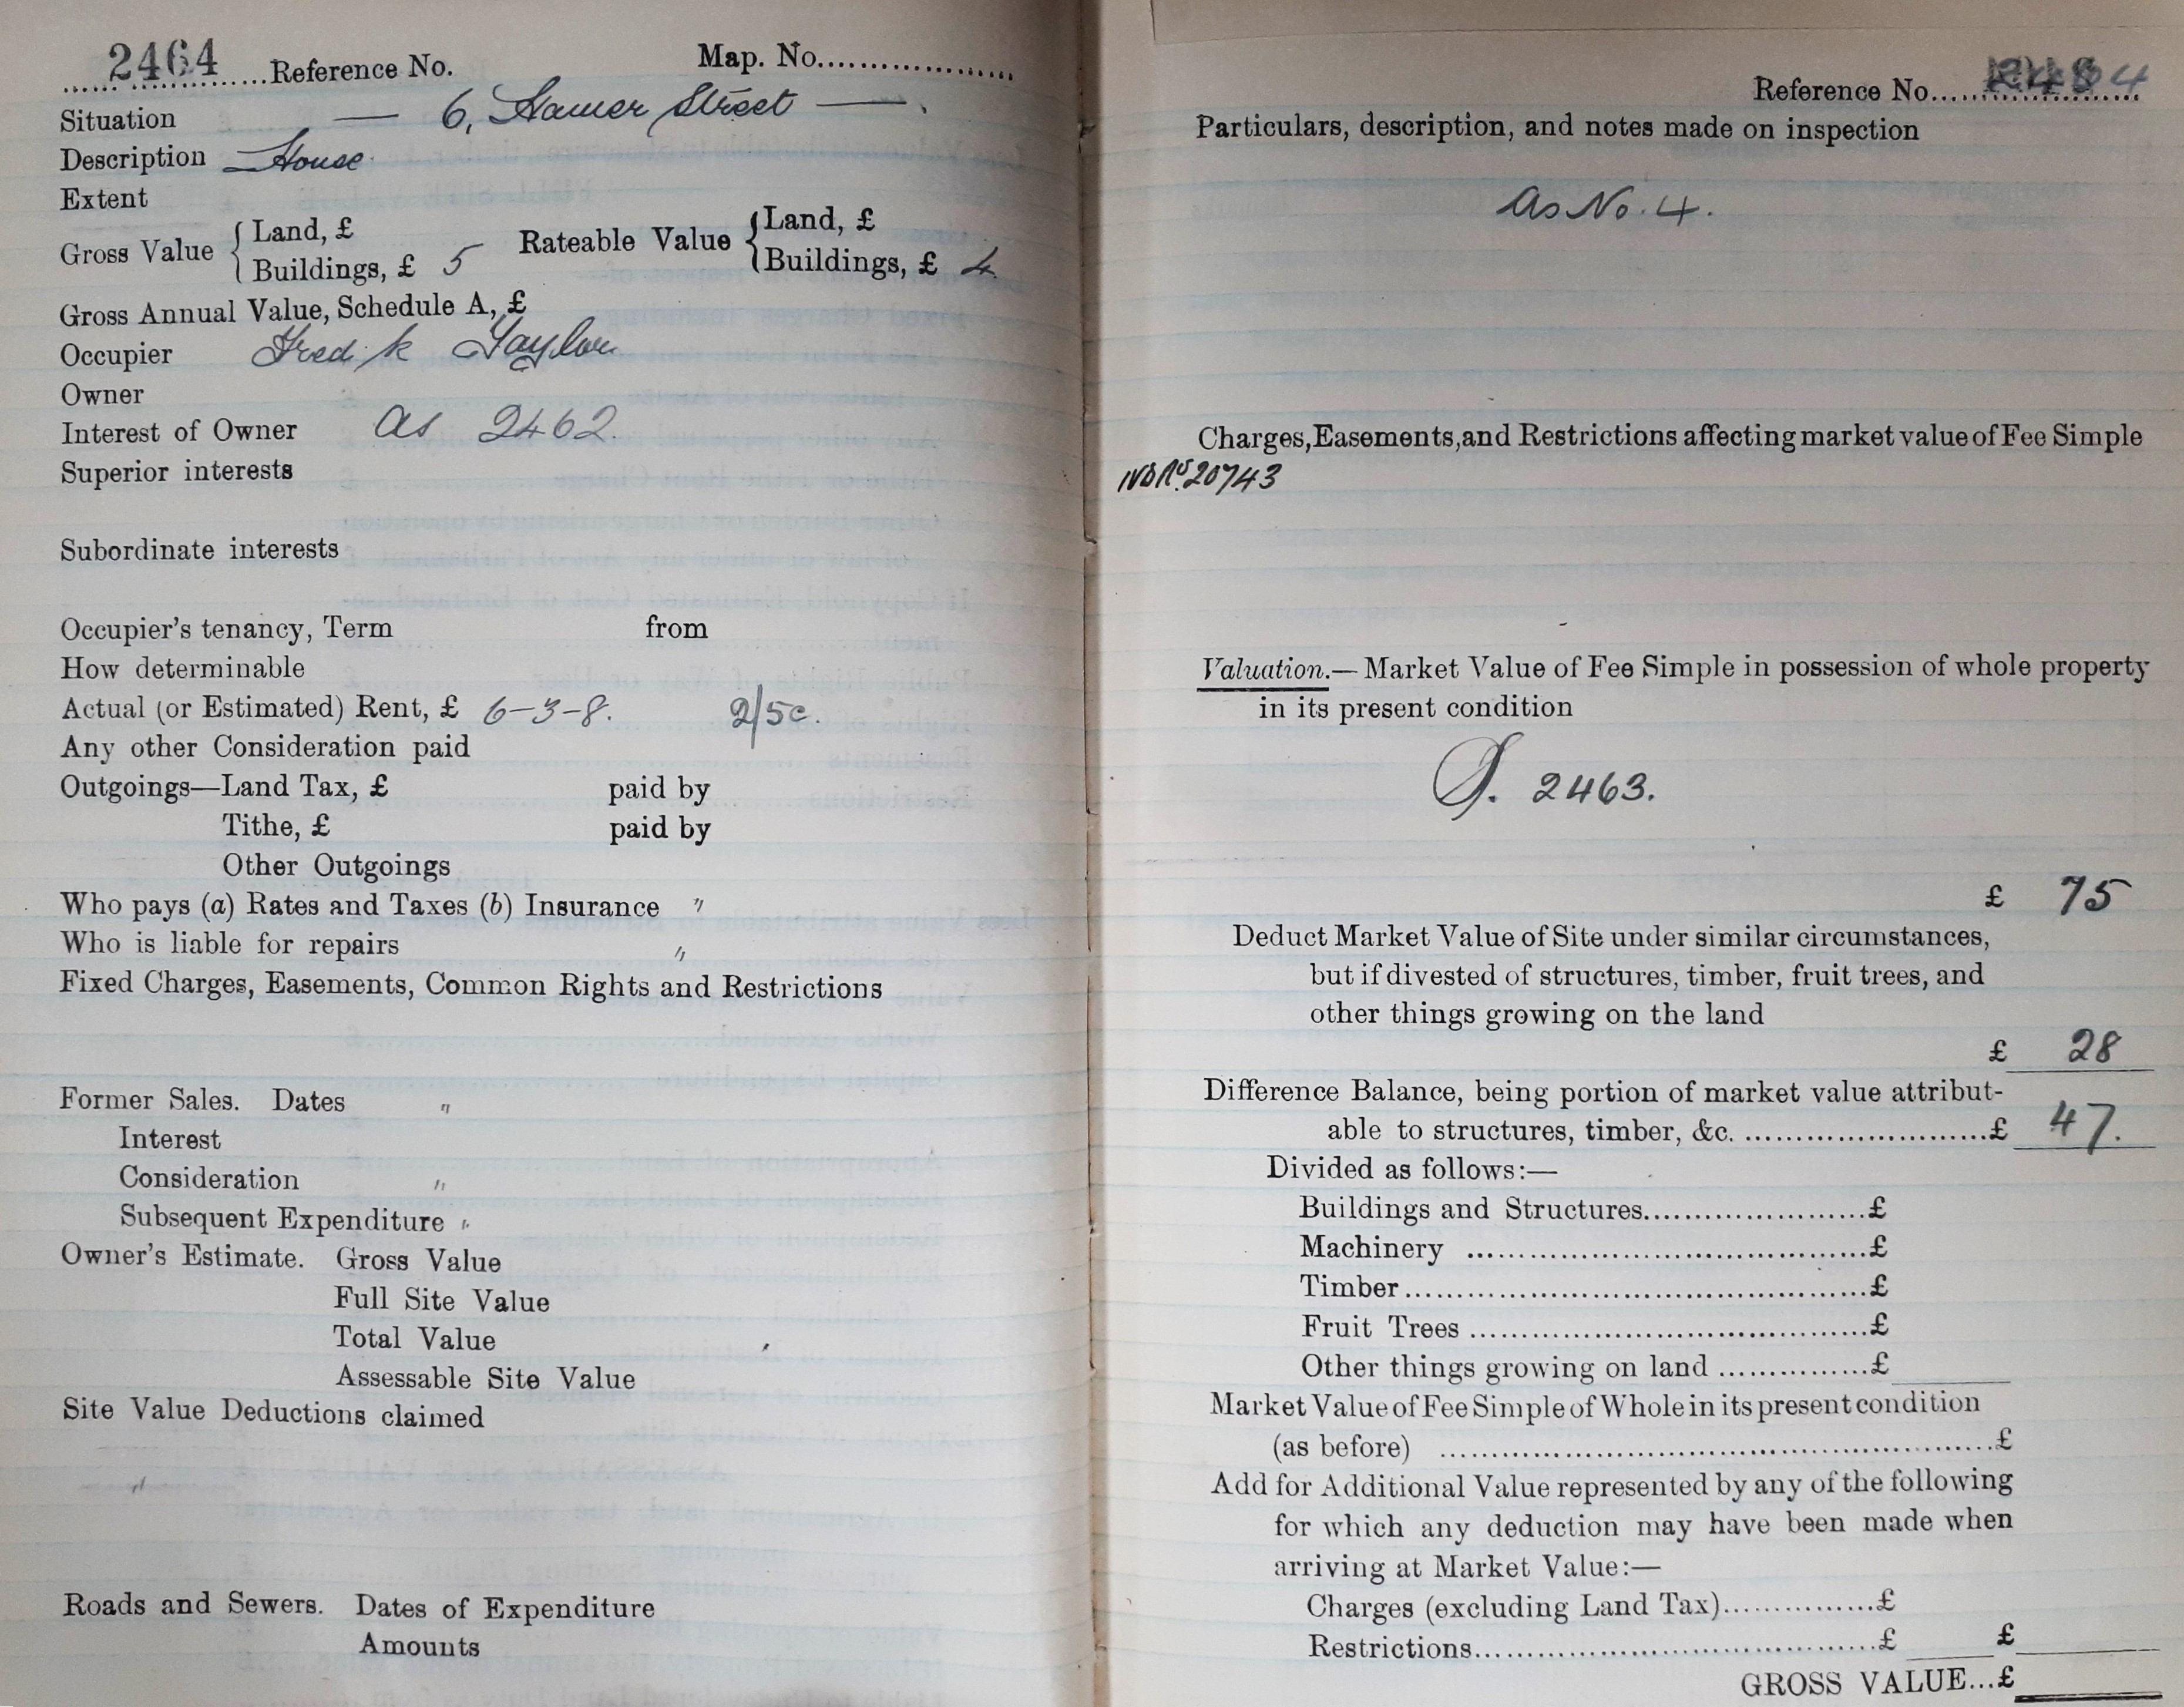 2464 Reference No. Map. No.
Situation — 6, Hamer Street —
Description House
Extent
Gross Value { Land, £ Rateable Value { Land, £
Buildings, £ 5 Buildings, £ 4
Gross Annual Value, Schedule A, £
Occupier Fred.k Taylor
Owner
Interest of Owner as 2462.
Superior interests
Subordinate interests
Occupier's tenancy, Term from
How determinable
Actual (or Estimated) Rent, £ 6-3-8. 2/5
Any other Consideration paid
Outgoings—Land Tax, £ paid by
Tithe, £ paid by
Other Outgoings
Who pays (a) Rates and Taxes (b) Insurance "
Who is liable for repairs "
Fixed Charges, Easements, Common Rights and Restrictions
Former Sales. Dates "
Interest
Consideration "
Subsequent Expenditure "
Owner's Estimate. Gross Value
Full Site Value
Total Value
Assessable Site Value
Site Value Deductions claimed
Roads and Sewers. Dates of Expenditure
Amounts
Reference No.
Particulars, description, and notes made on inspection
As No. 4.
Charges, Easements, and Restrictions affecting market value of Fee Simple
20743
Valuation.—Market Value of Fee Simple in possession of whole property
in its present condition
2463.
£ 75
Deduct Market Value of Site under similar circumstances,
but if divested of structures, timber, fruit trees, and
other things growing on the land
£ 28
Difference Balance, being portion of market value attribut-
able to structures, timber, &c. £ 47.
Divided as follows:—
Buildings and Structures £
Machinery £
Timber £
Fruit Trees £
Other things growing on land £
Market Value of Fee Simple of Whole in its present condition
(as before) £
Add for Additional Value represented by any of the following
for which any deduction may have been made when
arriving at Market Value:—
Charges (excluding Land Tax) £
Restrictions £ £
GROSS VALUE...£